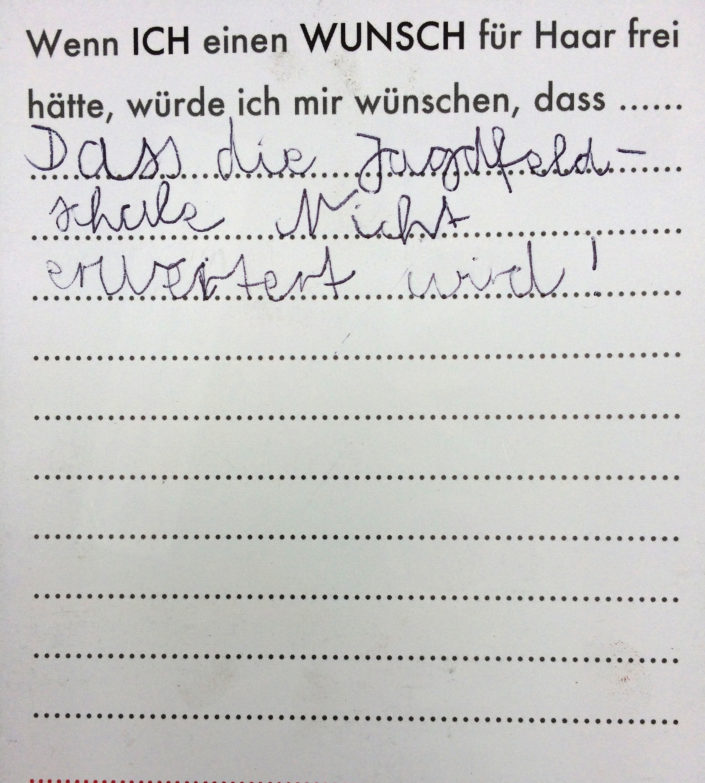 Wenn ICH einen WUNSCH für Haar frei
hätte, würde ich mir wünschen, dass ......
Dass die Jagdfeld-
schule Nicht
erweitert wird!